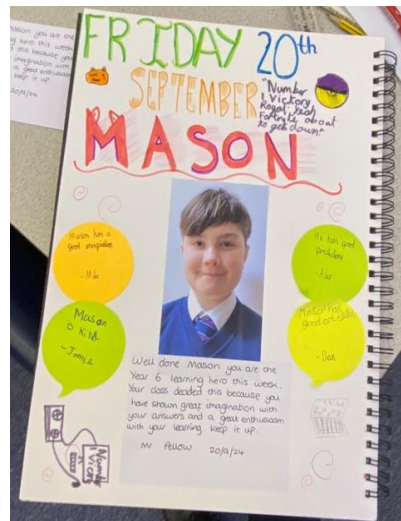 Mason you are the
hero this week
this because you
imagination with
a great enthusiasm
keep it up
20/9/24
FRIDAY 20th
SEPTEMBER
"Number
1 Victory
Royal. Yeah
Fortnite about
to get down"
MASON
Mason has a
good imagination
He has good
prediction
- Alex
Mason
is kind
- Jamie
Mason has
good art skills
- Dan
Well done Mason you are the
Year 6 learning hero this week.
Your class decided this because you
have shown great imagination with
your answers and a great enthusiasm
with your learning. keep it up.
Mr Fellow 20/9/24
Number
1 Victory